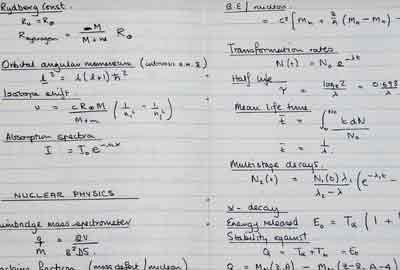 Rydberg Const.
R∞ = R∞
R hydrogen = M / (M + m) R∞
Orbital angular momentum
l² = l(l+1)ħ²
Isotope shift
ν = c R∞ M / (M+m) (1/n₁² - 1/n₂²)
Absorption spectra
I = I₀ e^-nαx
NUCLEAR PHYSICS
Bainbridge mass spectrometer
q/m = 2V / B²DS
fraction (mass defect / nucleon)
B.E / nucleon
= c² [ Mn + Z/A (MH - Mn) -
Transformation rates
N(t) = N₀ e^-λt
Half life
τ = loge2 / λ = 0.693 / λ
Mean life time
t̄ = ∫ t dN / N₀
t̄ = 1/λ
Multistage decays
N₂(t) = N₁(0) λ₁ / (λ₂ - λ₁) ( e^-λ₁t -
α - decay
Energy released E₀ = Tα ( 1 +
Stability against
Q = Tα + Tb = E₀
Q = M (Z,A) - M (Z-2, A-4)